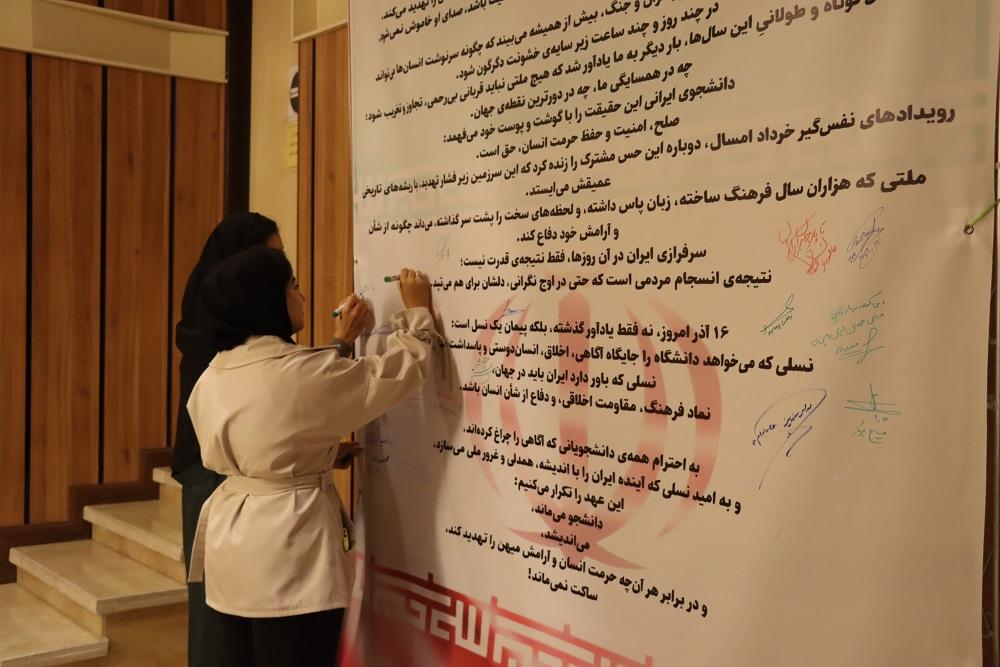 را تهدید می‌کند.
باشد، صدای او خاموش نمی‌شود.
و جنگ، بیش از همیشه می‌بیند که چگونه سرنوشت انسان‌ها می‌تواند
در چند روز و چند ساعت زیر سایه‌ی خشونت دگرگون شود.
کوتاه و طولانی این سال‌ها، بار دیگر به ما یادآور شد که هیچ ملتی نباید قربانی بی‌رحمی، تجاوز و تخریب شود؛
چه در همسایگی ما، چه در دورترین نقطه‌ی جهان.
دانشجوی ایرانی این حقیقت را با گوشت و پوست خود می‌فهمد:
صلح، امنیت و حفظ حرمت انسان، حق است.
رویدادهای نفس‌گیر خرداد امسال، دوباره این حس مشترک را زنده کرد که این سرزمین زیر فشار تهدید، با ریشه‌های تاریخی
عمیقش می‌ایستد.
ملتی که هزاران سال فرهنگ ساخته، زبان پاس داشته، و لحظه‌های سخت را پشت سر گذاشته، می‌داند چگونه از شأن
و آرامش خود دفاع کند.
سرفرازی ایران در آن روزها، فقط نتیجه‌ی قدرت نیست؛
نتیجه‌ی انسجام مردمی است که حتی در اوج نگرانی، دلشان برای هم می‌تپد.
۱۶ آذر امروز، نه فقط یادآور گذشته، بلکه پیمان یک نسل است:
نسلی که می‌خواهد دانشگاه را جایگاه آگاهی، اخلاق، انسان‌دوستی و پاسداشت
نسلی که باور دارد ایران باید در جهان،
نماد فرهنگ، مقاومت اخلاقی، و دفاع از شأن انسان باشد.
به احترام همه‌ی دانشجویانی که آگاهی را چراغ کرده‌اند،
و به امید نسلی که آینده ایران را با اندیشه، همدلی و غرور ملی می‌سازد،
این عهد را تکرار می‌کنیم:
دانشجو می‌ماند،
می‌اندیشد،
و در برابر هر آن‌چه حرمت انسان و آرامش میهن را تهدید کند،
ساکت نمی‌ماند!